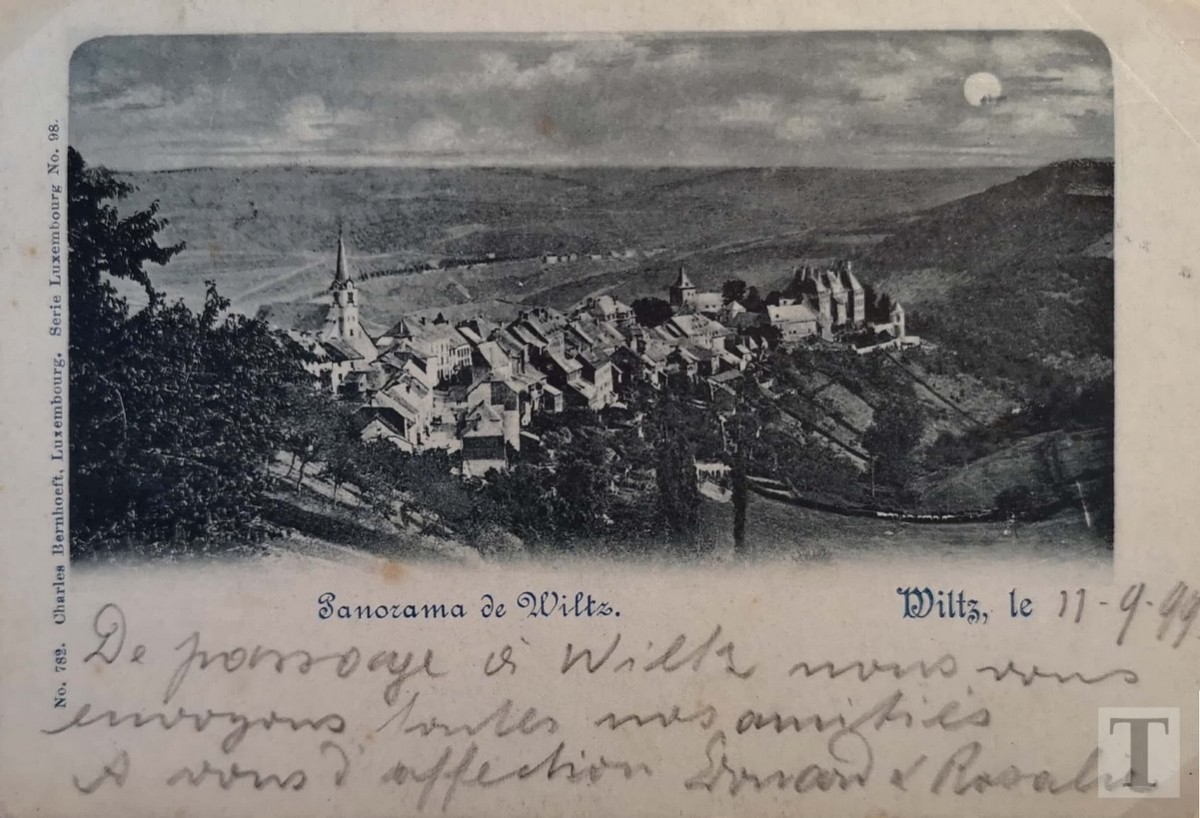 No. 782. Charles Bernhoeft, Luxembourg. Serie Luxembourg No. 98.
Panorama de Wiltz.
Wiltz, le 11-9-99
De passage à Wiltz nous vous
envoyons toutes nos amitiés
A vous d'affection Edouard & Rosalie
T